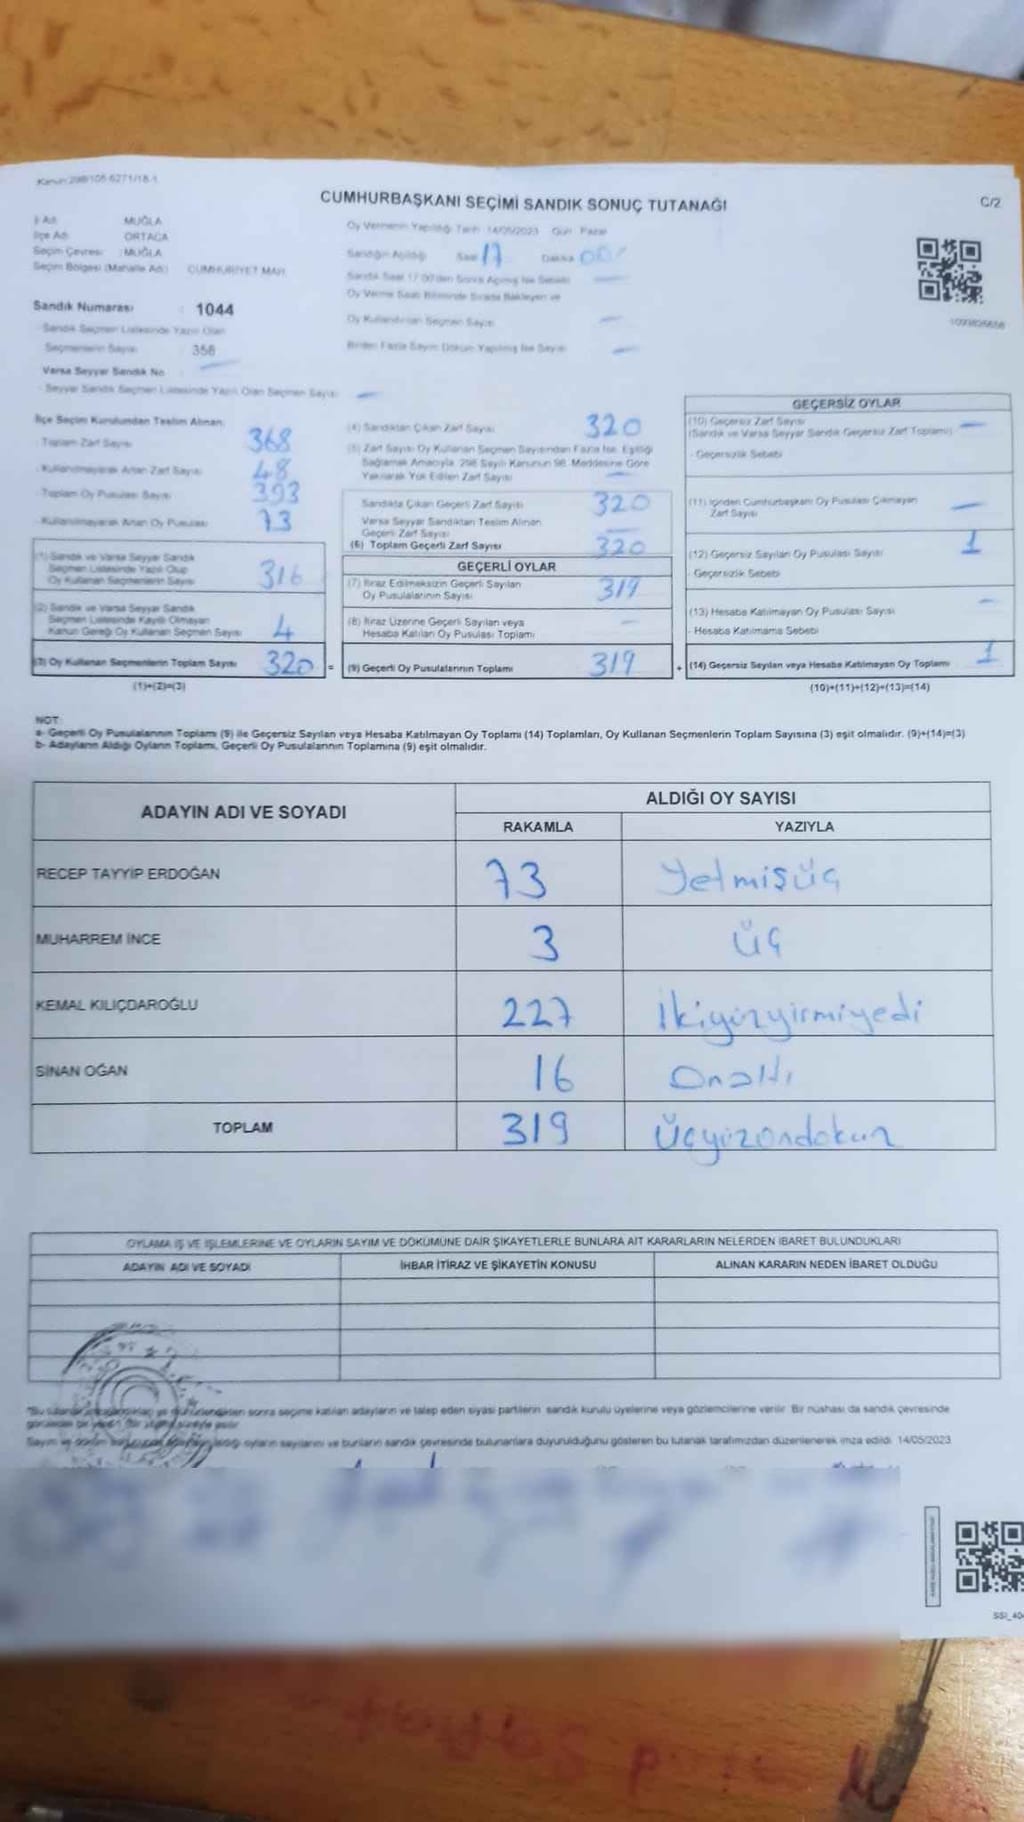 Kanun:298/105 6271/18-1
CUMHURBAŞKANI SEÇİMİ SANDIK SONUÇ TUTANAĞI
C/2
İl Adı : MUĞLA
İlçe Adı : ORTACA
Seçim Çevresi : MUĞLA
Seçim Bölgesi (Mahalle Adı) : CUMHURİYET MAH.
Sandık Numarası : 1044
Sandık Seçmen Listesinde Yazılı Olan
Seçmenlerin Sayısı : 358
Varsa Seyyar Sandık No
- Seyyar Sandık Seçmen Listesinde Yazılı Olan Seçmen Sayısı
Oy Vermenin Yapıldığı Tarih 14/05/2023 Gün Pazar
Sandığın Açıldığı Saat 17 Dakika 00
Sandık Saat 17:00'den Sonra Açılmış İse Sebebi
Oy Verme Saati Bitiminde Sırada Bekleyen ve
Oy Kullandırılan Seçmen Sayısı
Birden Fazla Sayım Döküm Yapılmış İse Sayısı
İlçe Seçim Kurulundan Teslim Alınan:
- Toplam Zarf Sayısı 368
- Kullanılmayarak Artan Zarf Sayısı 48
- Toplam Oy Pusulası Sayısı 393
- Kullanılmayarak Artan Oy Pusulası 73
(1) Sandık ve Varsa Seyyar Sandık
Seçmen Listesinde Yazılı Olup
Oy Kullanan Seçmenlerin Sayısı 316
(2) Sandık ve Varsa Seyyar Sandık
Seçmen Listesinde Kayıtlı Olmayan
Kanun Gereği Oy Kullanan Seçmen Sayısı 4
(3) Oy Kullanan Seçmenlerin Toplam Sayısı 320 =
(1)+(2)=(3)
(4) Sandıktan Çıkan Zarf Sayısı 320
(5) Zarf Sayısı Oy Kullanan Seçmen Sayısından Fazla İse, Eşitliği
Sağlamak Amacıyla, 298 Sayılı Kanunun 98. Maddesine Göre
Yakılarak Yok Edilen Zarf Sayısı
Sandıkta Çıkan Geçerli Zarf Sayısı 320
Varsa Seyyar Sandıktan Teslim Alınan
Geçerli Zarf Sayısı
(6) Toplam Geçerli Zarf Sayısı 320
GEÇERLİ OYLAR
(7) İtiraz Edilmeksizin Geçerli Sayılan
Oy Pusulalarının Sayısı 319
(8) İtiraz Üzerine Geçerli Sayılan veya
Hesaba Katılan Oy Pusulası Toplamı
(9) Geçerli Oy Pusulalarının Toplamı 319 +
GEÇERSİZ OYLAR
(10) Geçersiz Zarf Sayısı
(Sandık ve Varsa Seyyar Sandık Geçersiz Zarf Toplamı)
- Geçersizlik Sebebi
(11) İçinden Cumhurbaşkanı Oy Pusulası Çıkmayan
Zarf Sayısı
(12) Geçersiz Sayılan Oy Pusulası Sayısı 1
- Geçersizlik Sebebi
(13) Hesaba Katılmayan Oy Pusulası Sayısı
- Hesaba Katılmama Sebebi
(14) Geçersiz Sayılan veya Hesaba Katılmayan Oy Toplamı 1
(10)+(11)+(12)+(13)=(14)
NOT:
a- Geçerli Oy Pusulalarının Toplamı (9) ile Geçersiz Sayılan veya Hesaba Katılmayan Oy Toplamı (14) Toplamları, Oy Kullanan Seçmenlerin Toplam Sayısına (3) eşit olmalıdır. (9)+(14)=(3)
b- Adayların Aldığı Oyların Toplamı, Geçerli Oy Pusulalarının Toplamına (9) eşit olmalıdır.
ADAYIN ADI VE SOYADI
ALDIĞI OY SAYISI
RAKAMLA YAZIYLA
RECEP TAYYİP ERDOĞAN 73 Yetmişüç
MUHARREM İNCE 3 üç
KEMAL KILIÇDAROĞLU 227 İkiyüzyirmiyedi
SİNAN OĞAN 16 Onaltı
TOPLAM 319 Üçyüzondokuz
OYLAMA İŞ VE İŞLEMLERİNE VE OYLARIN SAYIM VE DÖKÜMÜNE DAİR ŞİKAYETLERLE BUNLARA AİT KARARLARIN NELERDEN İBARET BULUNDUKLARI
ADAYIN ADI VE SOYADI İHBAR İTİRAZ VE ŞİKAYETİN KONUSU ALINAN KARARIN NEDEN İBARET OLDUĞU
sonra seçime katılan adayların ve talep eden siyasi partilerin sandık kurulu üyelerine veya gözlemcilerine verilir. Bir nüshası da sandık çevresinde
oyların sayılarını ve bunların sandık çevresinde bulunanlara duyurulduğunu gösteren bu tutanak tarafımızdan düzenlenerek imza edildi. 14/05/2023